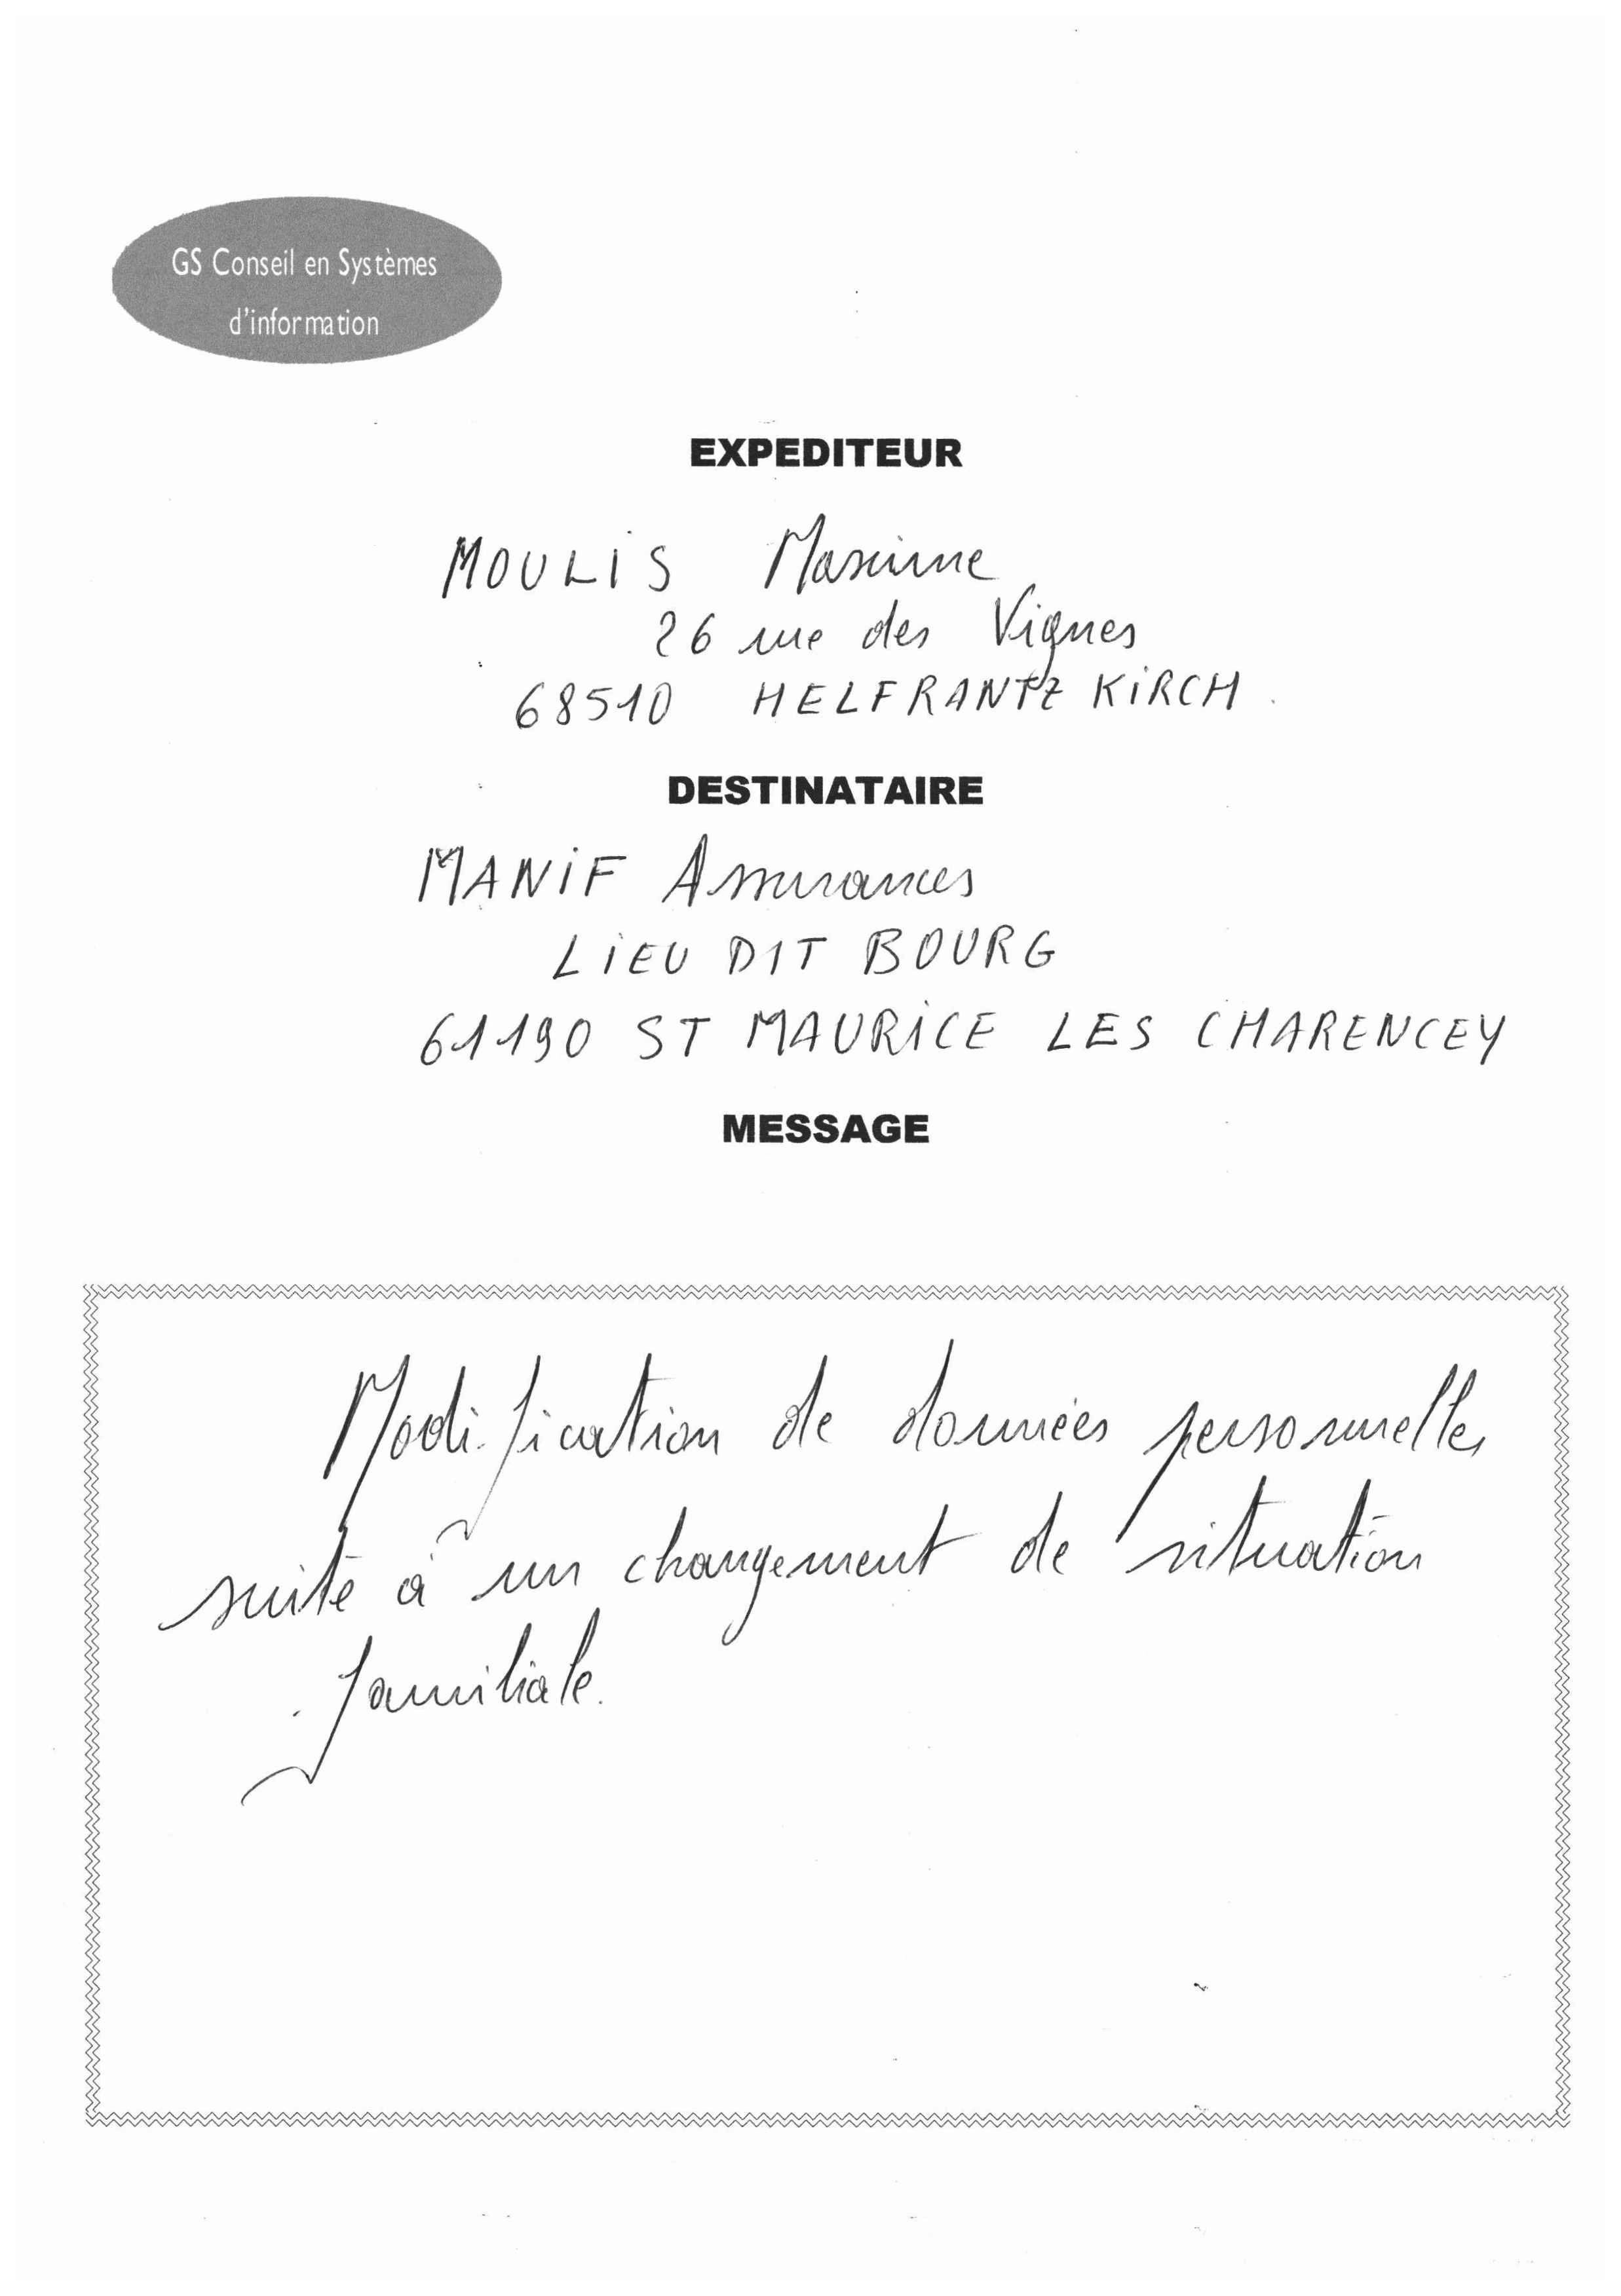 GS Conseil en Systèmes
d'information
EXPEDITEUR
MOULIS Maxime
26 rue des Vignes
68510 HELFRANTZKIRCH
DESTINATAIRE
MANIF Assurances
LIEU DIT BOURG
61190 ST MAURICE LES CHARENCEY
MESSAGE
Modification de données personnelles
suite à un changement de situation
familiale.